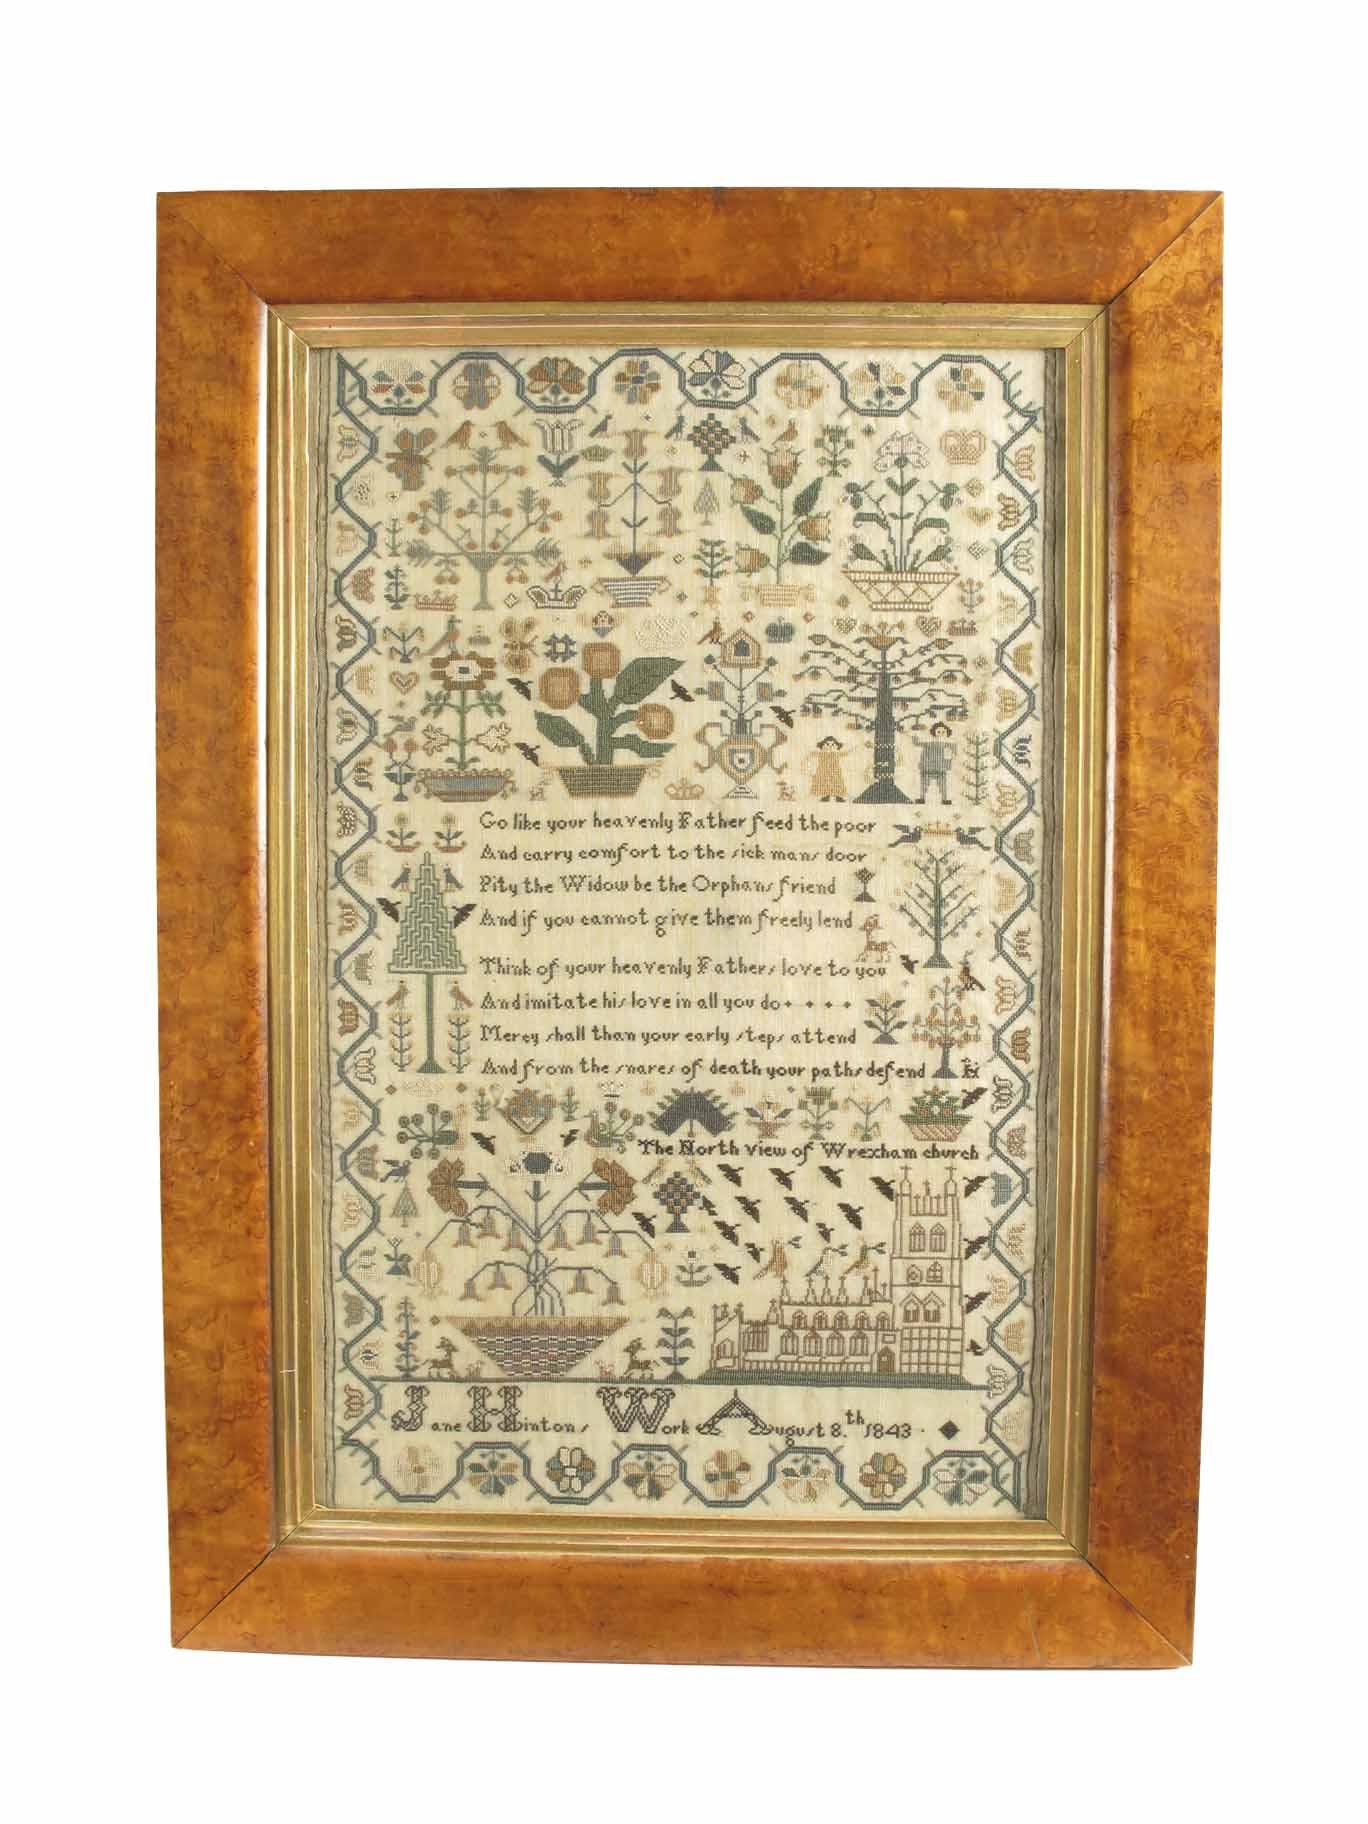 Go like your heavenly Father feed the poor
And carry comfort to the sick mans door
Pity the Widow be the Orphans friend
And if you cannot give them freely lend
Think of your heavenly Fathers love to you
And imitate his love in all you do
Mercy shall than your early steps attend
And from the snares of death your paths defend
The North view of Wrexham church
Jane Hintons Work August 8.th 1843